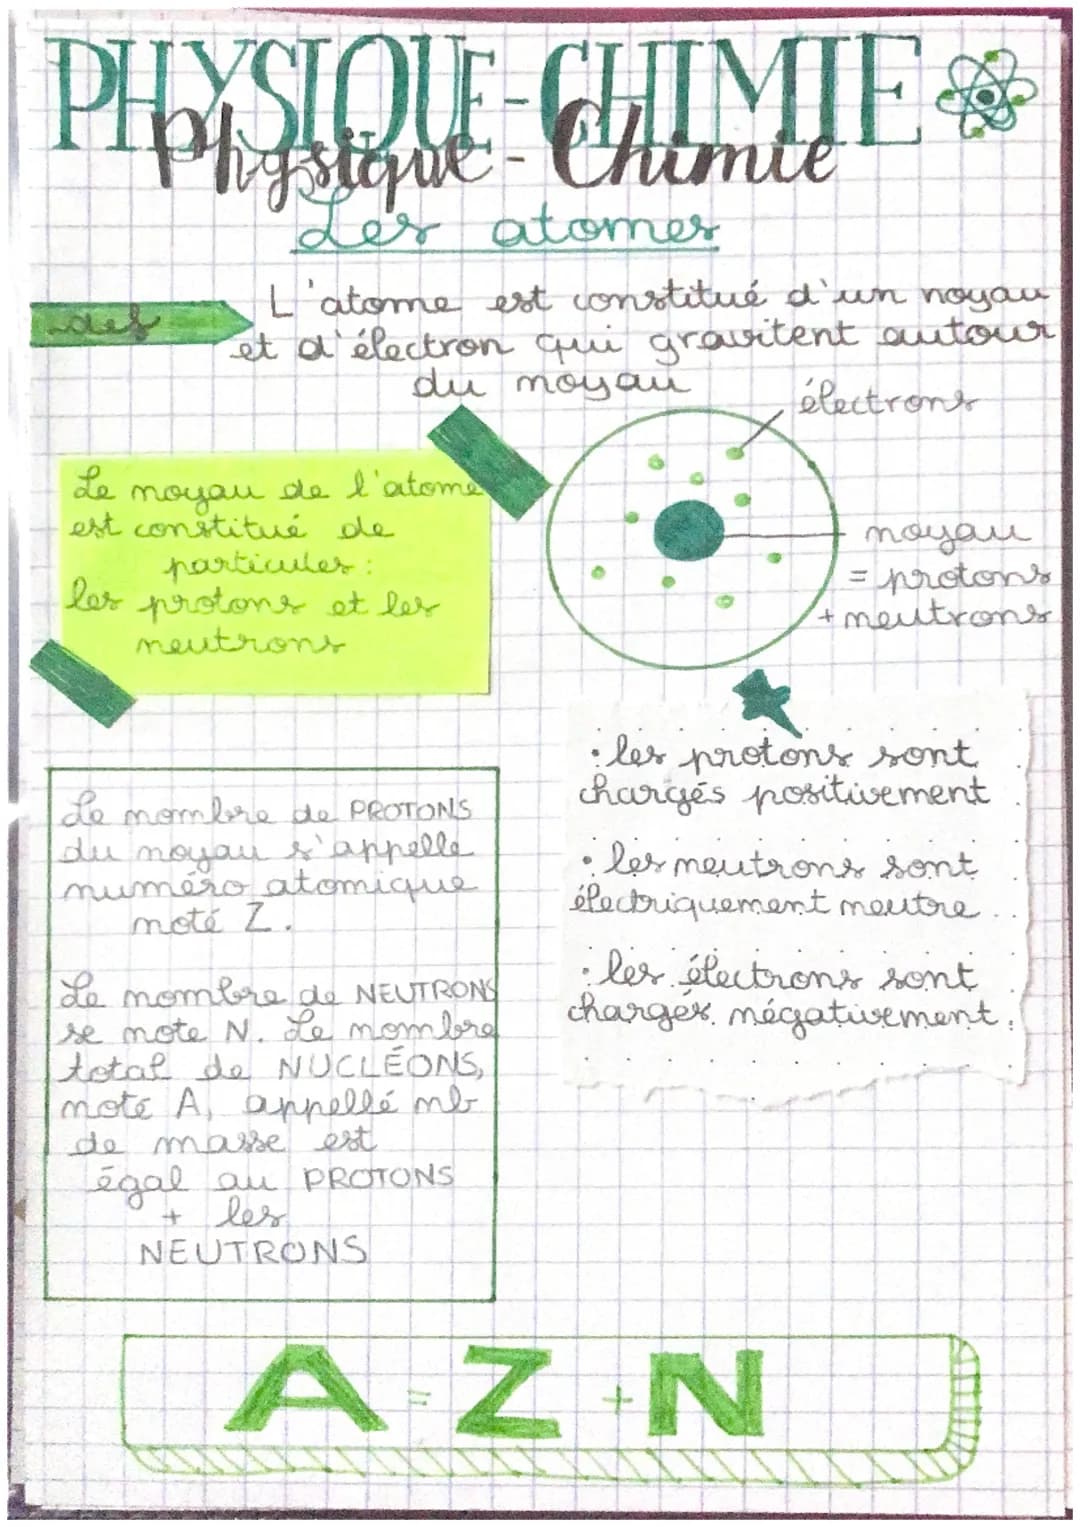 PHYSIQUE-CHIMIE
Physique - Chimie
Les atomes
def
L'atome est constitué d'un noyau
et d'électron qui gravitent autour
du noyau
électrons
Le noyau de l'atome
est constitué de
particules :
les protons et les
neutrons
noyau
= protons
+ neutrons
• les protons sont
chargés positivement
• les neutrons sont
électriquement neutre
• les électrons sont
chargés négativement.
Le nombre de PROTONS
du noyau s'appelle
numéro atomique
noté Z.
Le nombre de NEUTRONS
se note N. Le nombre
total de NUCLÉONS,
noté A, appellé nb
de masse est
égal au PROTONS
+ les
NEUTRONS
A = Z + N